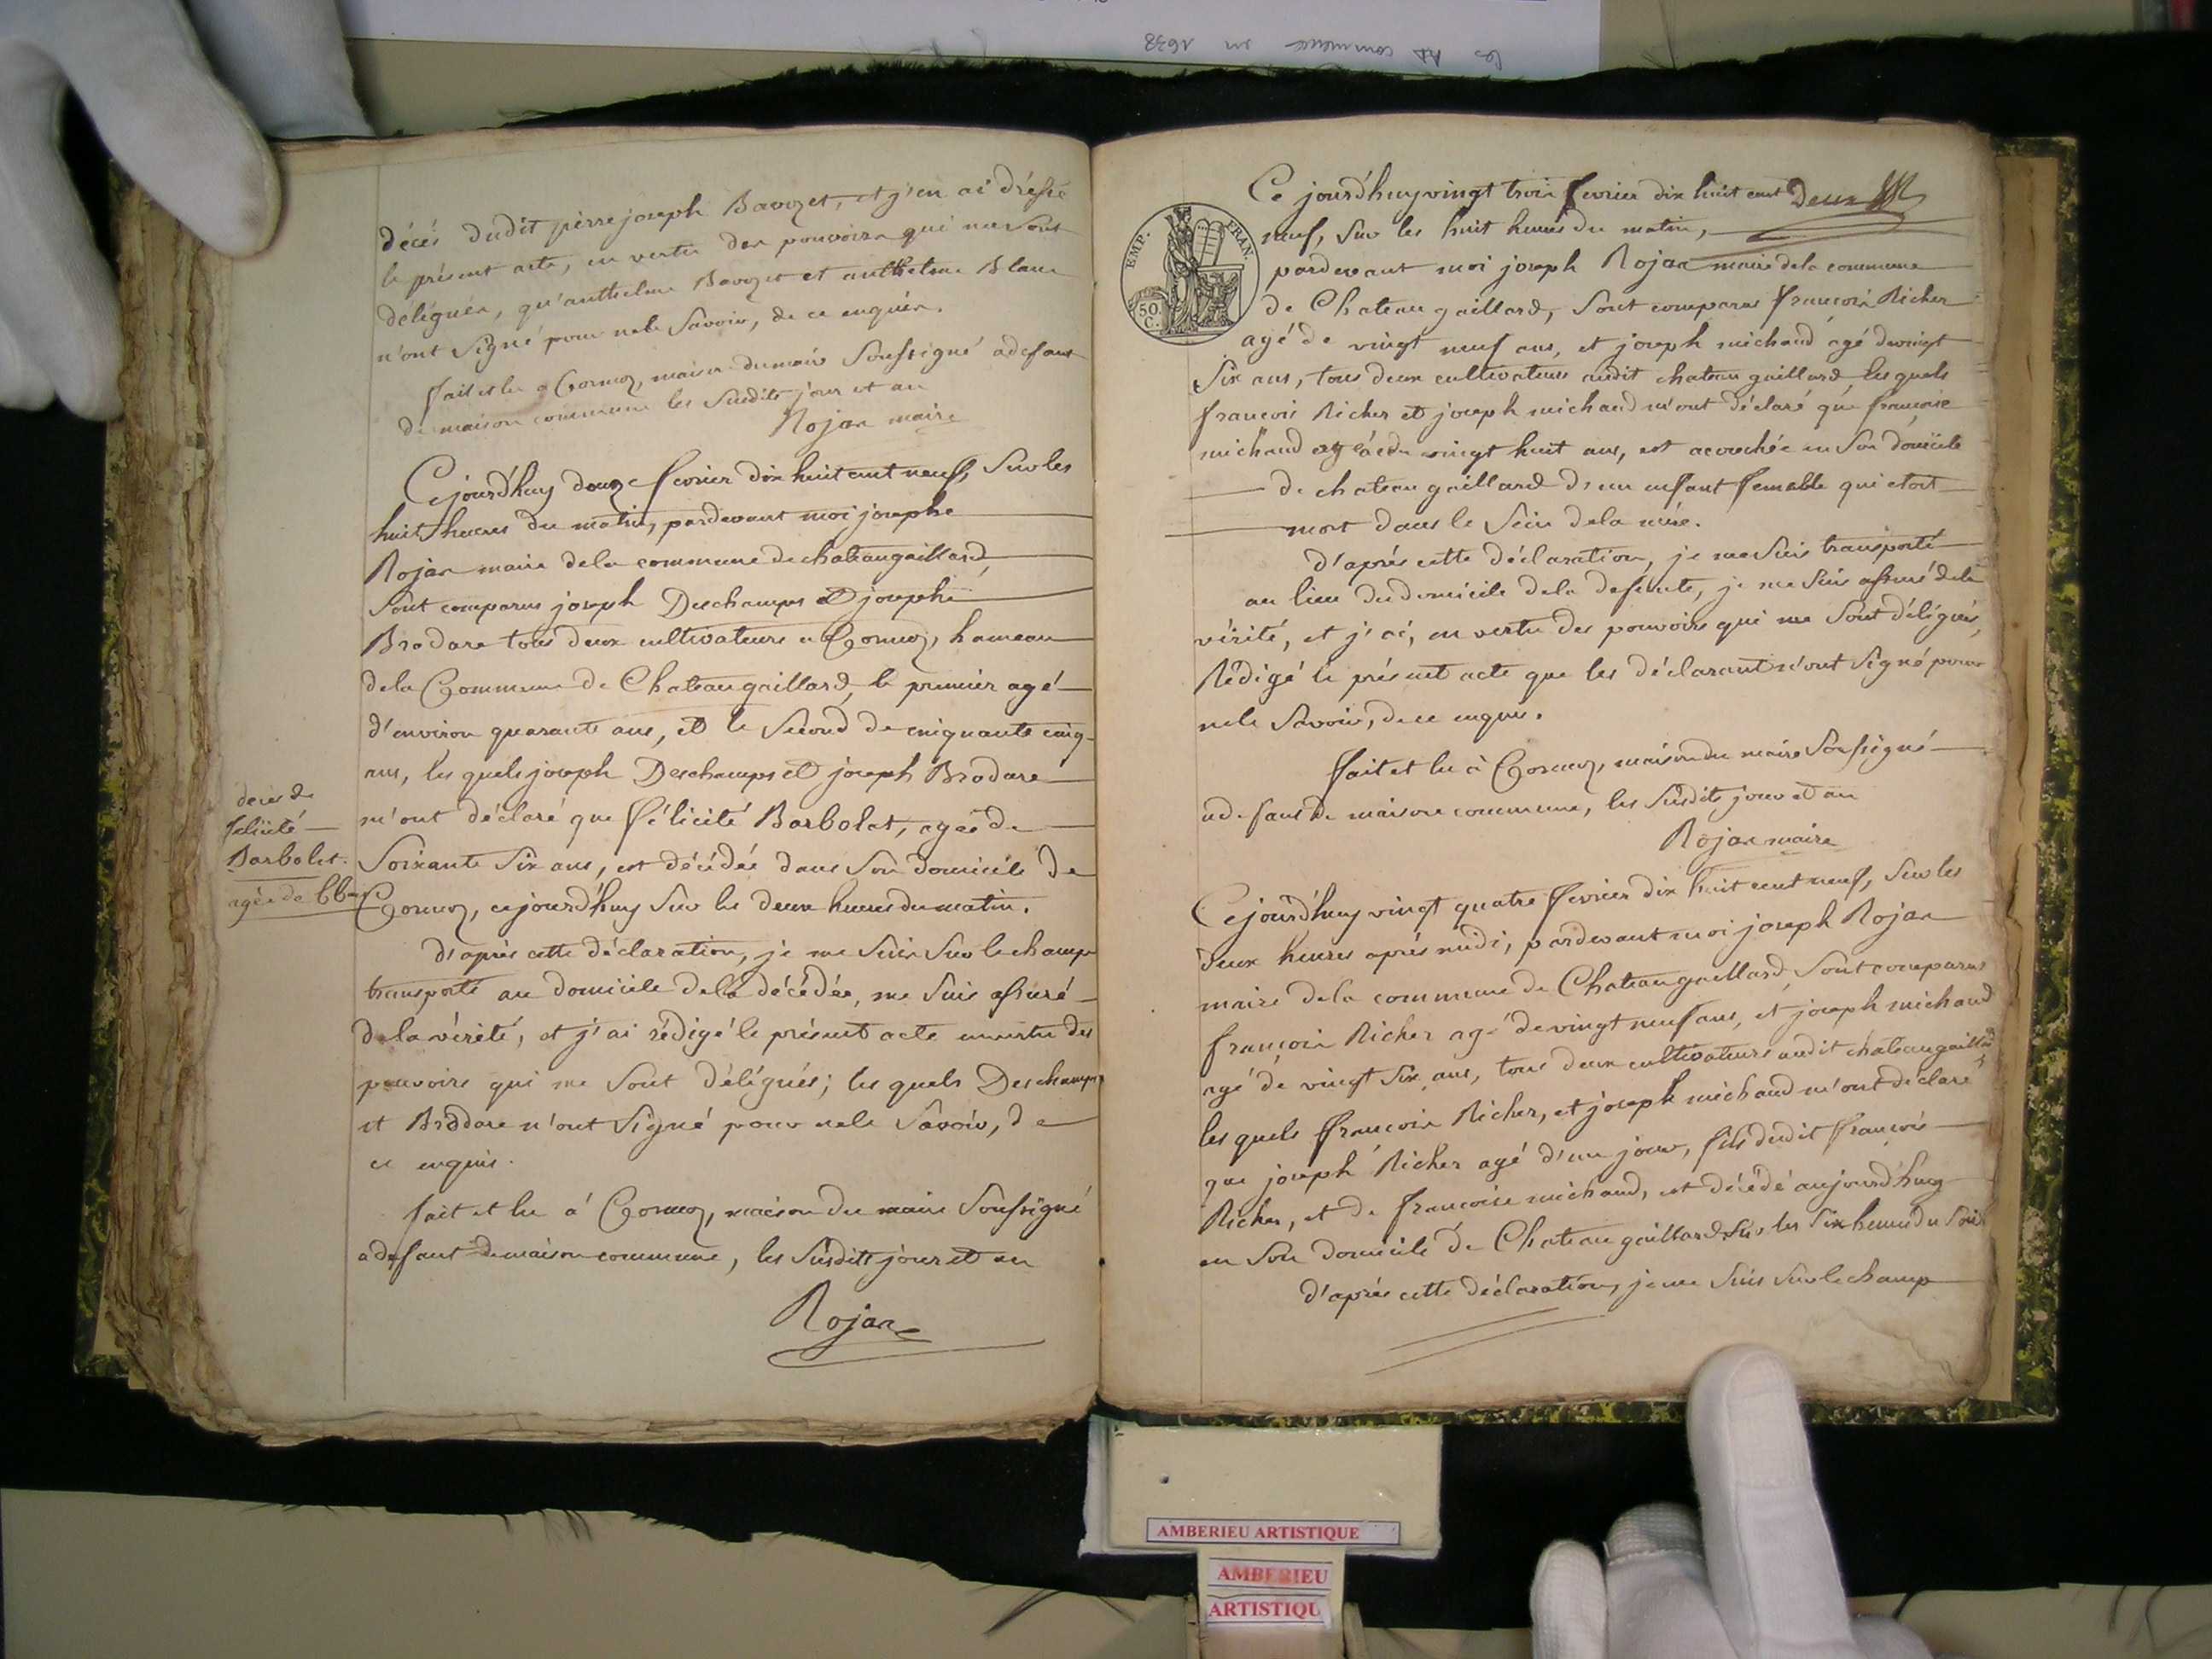 les AD commence en 1638
décés dudit pierre joseph Bavozet, et j'en ai dréssé
le présent acte, en vertu des pouvoirs qui me sont
délégués, qu'anthelme Bavozet et anthelme Blanc
n'ont signé pour ne le savoir, de ce enquis.
fait et lu a Cormoz, maison du maire soussigné adefaut
de maison commune les susdits jour et an
Rojan maire
Cejourd'huy douze fevrier dix huit cent neuf, sur les
huit heures du matin, pardevant moi josephe
Rojan maire dela commune de chateaugaillard,
sont comparus joseph Deschamps et josephe
Brodare tous deux cultivateurs a Cormoz, hameau
dela Commune de Chateaugaillard, le premier agé
d'environ quarante ans, et le second de cinquante cinq
ans, les quels joseph Deschamps et joseph Brodare
m'ont déclaré que félicité Barbolat, agée de
soixante six ans, est décédée dans son domicile de
Cormoz, cejourd'huy sur les deux heures du matin.
d'aprés cette déclaration, je me suis sur le champ
transporté au domicile dela décédée, me suis assuré
dela vérité, et j'ai rédigé le présent acte en vertu des
pouvoirs qui me sont délégués; les quels Deschamps
et Brodare n'ont signé pour nele savoir, de
ce enquis.
fait et lu a Cormoz, maison du maire soussigné
adefaut de maison commune, les susdits jour et an
Rojan
deces de
felicité
Barbolat.
agée de 66 ans
EMP. FRAN.
50
C.
Ce jourd'huy vingt trois fevrier dix huit cent
neuf, sur les huit heures du matin,
pardevant moi joseph Rojan maire dela commune
de Chateaugaillard, sont comparus francois Richer
agé de vingt neuf ans, et joseph michaud agé de vingt
six ans, tous deux cultivateurs audit chateau gaillard, les quels
francois Richer et joseph michaud m'ont déclaré que francoise
michaud agée de vingt huit ans, est acouchée en son domicile
de chateau gaillard d'un enfant femelle qui etoit
mort dans le sein dela mére.
d'aprés cette déclaration, je me suis transporté
au lieu du domicile dela defunte, je me suis assuré dela
vérité, et j'ai, en vertu des pouvoirs qui me sont délégués,
Rédigé le présent acte que les déclarant n'ont signé pour
nele savoir, de ce enquis.
fait et lu à Cormoz, maison du maire soussigné
adefaut de maison commune, les susdits jour et an
Rojan maire
Cejourd'huy vingt quatre fevrier dix huit cent neuf, sur les
deux heures aprés midi, pardevant moi joseph Rojan
maire dela commune de Chateaugaillard, sont comparus
francois Richer agé de vingt neuf ans, et joseph michaud
agé de vingt six ans, tous deux cultivateurs audit chateaugaillard
les quels francois Richer, et joseph michaud m'ont déclaré
que joseph Richer agé d'un jour, fils dudit francois
Richer, et de francoise michaud, est décédé aujourd'huy
en son domicile de Chateau gaillard sur les six heures du soir
d'aprés cette déclaration, je me suis sur le champ
AMBERIEU ARTISTIQUE
AMBERIEU
ARTISTIQU